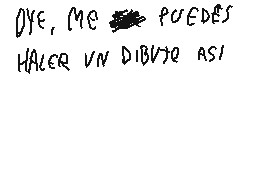 OYE, ME PUEDES
HACER UN DIBUJO ASI